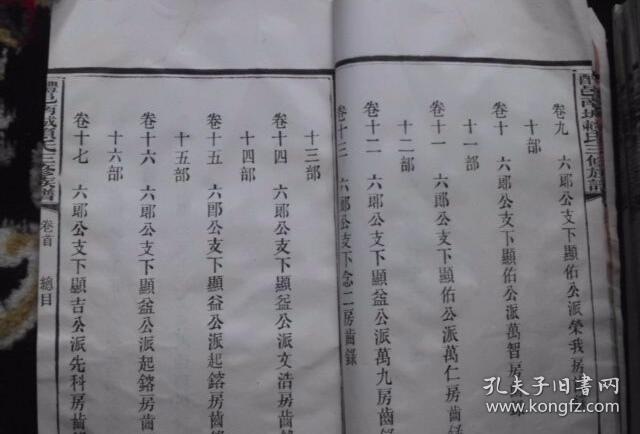 卷九 六郎公支下顯佑公派榮我房
十部
卷十 六郎公支下顯佑公派萬智房
十一部
卷十一 六郎公支下顯佑公派萬仁房齒
十二部
卷十二 六郎公支下顯益公派萬九房齒錄
卷十三 六郎公支下顯念二房齒錄
十三部
卷十四 六郎公支下顯益公派文浩房齒
十四部
卷十五 六郎公支下顯益公派起鎔房齒
十五部
卷十六 六郎公支下顯益公派起鎔房齒
十六部
卷十七 六郎公支下顯吉公派先科房齒
醴邑南城賴氏三修族譜 卷首 總目
孔夫子旧书网
www.kongfz.com